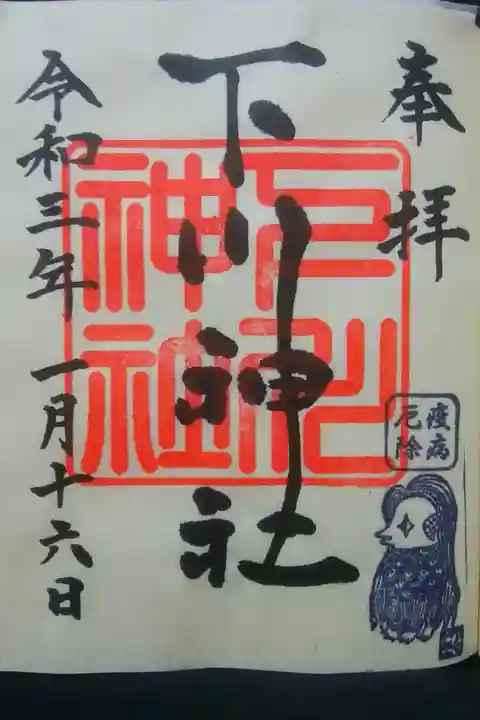 奉拝
下川神社
神社
令和三年一月十六日
疫病
厄除